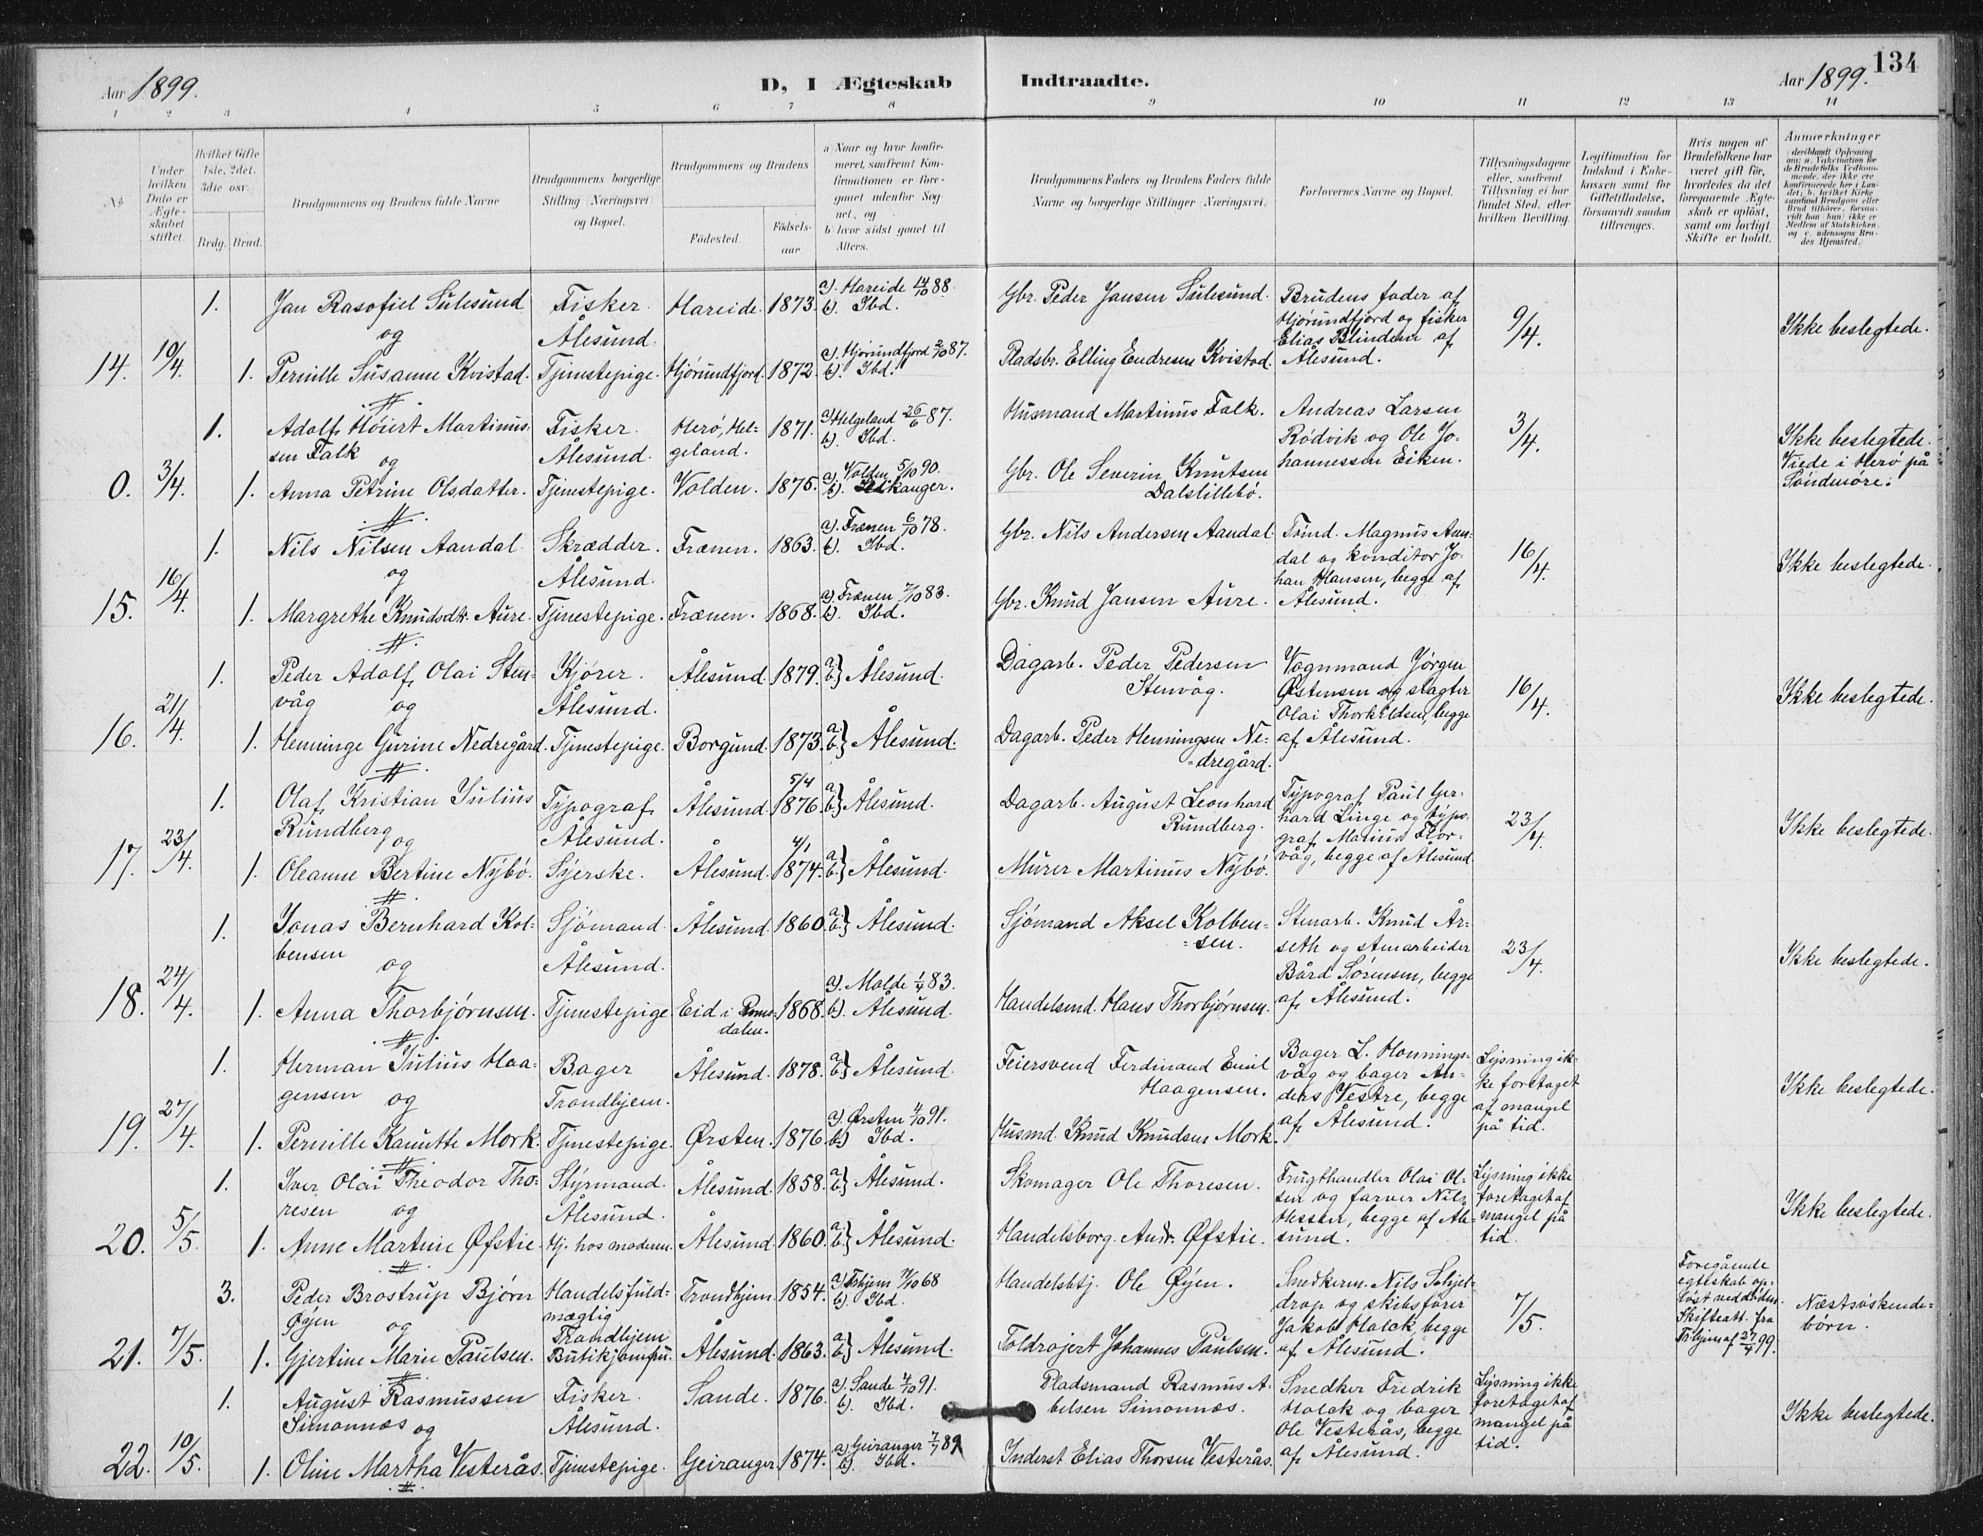 Aar 1899.
D, I Ægteskab Indtraadte.
Aar 1899.
134
1 2 3 4 5 6 7 8 9 10 11 12 13 14
No
Under hvilken Dato er Ægteskabet stiftet.
Hvilket Gifte 1ste, 2det, 3die osv.
Brdg. Brud.
Brudgommens og Brudens fulde Navne
Brudgommens borgerlige Stilling (Næringsvei) og Bopæl.
Brudgommens og Brudens
Fødested.
Fødselsaar.
a Naar og hvor konfirmeret, saafremt Konfirmationen er foregaaet udenfor Sognet, og
b hvor sidst gaaet til Alters.
Brudgommens Faders og Brudens Faders fulde Navne og borgerlige Stillinger (Næringsvei.
Forlovernes Navne og Bopæl.
Tillysningsdagene eller, saafremt Tillysning ei har fundet Sted, efter hvilken Bevilling.
Legitimation for Indskud i Enkekassen samt for Giftetilladelse, forsaavidt saadan tiltrænges.
Hvis nogen af Brudefolkene har været gift før, hvorledes da det foregaaende Ægteskab er opløst, samt om lovligt Skifte er holdt.
Anmærkninger
1. Jan Rasofiel Sulesund Fisker. Hareide. 1873. a). Hareide 14/10 88. Gbr. Peder Jansen Sulesund. Brudens fader af
og Ålesund. b). Ibd. Hjørundfjord og fisker 9/4. Ikke beslegtede.
14. 10/4 a). Hjørundfjord 2/10 87. Elias Blindem af
1. Pernille Susanne Kvistad. Tjenestepige. Hjørundfjord. 1872. b). Ibd. Pladsbr. Elling Endresen Kvistad. Ålesund.
1. Adolf Høiert Martinus- Fisker. Herø, Hel- 1871. a) Helgeland 26/6 87. Husmand Martinus Falk. Andreas Larsen 3/4.
sen Falk og Ålesund. geland. b). Ibd. Rødvik og Ole Jo- Ikke beslegtede.
0. 3/4. 1. Anna Petrine Olsdatter. Tjenestepige. Volden. 1875. a). Volden 5/10 90. Gbr. Ole Severin Knutsen hannessen Eiken. Viede i Herø på
b). kanger. Dalslillebø. Søndmøre.
1. Nils Nilsen Aandal Skrædder. Frænen. 1863. a). Frænen 6/10 78. Gbr. Nils Andersen Aandal. Tømd. Magnus Aan-
og Ålesund. b). Ibd. dal og konditor Jo- 16/4. Ikke beslegtede.
15. 16/4. a). Frænen 7/10 83. han Hansen, begge af
1. Margrethe Knudsdtr. Aure. Tjenestepige. Frænen. 1868. b). Ibd. Gbr. Knud Jansen Aure. Ålesund.
1. Peder Adolf Olai Sten- Kjører. Ålesund. 1879. a) b) Ålesund. Dagarb. Peder Pedersen Vognmand Jørgen
våg og Ålesund. Stenvåg. Østensen og slagter 16/4. Ikke beslegtede.
16. 21/4 Olai Thorkildsen, begge
1. Henninge Gurine Nedregård. Tjenestepige. Borgund. 1873. a) b) Ålesund. Dagarb. Peder Henningsen Ne- af Ålesund.
dregård.
1. Olaf Kristian Julius Typograf Ålesund. 5/4 1876. a) b) Ålesund. Dagarb. August Leonhard Typograf Paul Ger-
Rundberg og Ålesund. Rundberg. hard Linge og typo- 23/4. Ikke beslegtede.
17. 23/4. graf Marius Flor-
1. Oleanne Bertine Nybø. Syerske. Ålesund. 4/1 1874. a) b) Ålesund. Murer Martinus Nybø. våg, begge af Ålesund.
1. Jonas Bernhard Kol- Sjømand. Ålesund. 1860. a) b) Ålesund. Sjømand Aksel Kolben- Stenarb. Knud År-
bensen og Ålesund. sen. seth og stenarbeider 23/4. Ikke beslegtede.
18. 24/4. a). Molde 1/4 83. Bård Sørensen, begge
1. Anna Thorbjørnsen. Tjenestepige. Eid i Roms- 1868. b). Ålesund. Handelsmd. Hans Thorbjørnsen. af Ålesund.
dalen.
1. Herman Julius Haa- Bager Ålesund. 1878. a) b) Ålesund. Feiersvend Ferdinand Emil Bager L. Honnings- Lysning ik-
gensen og Trondhjem. Haagensen. våg og bager An- ke foretaget Ikke beslegtede.
19. 27/4. a) Ørsten 4/10 91. ders Vestre, begge af mangel
1. Pernille Kanutte Mork. Tjenestepige. Ørsten. 1876. b) Ibd. Husmd. Knud Knudsen Mork. af Ålesund. på tid.
1. Iver Olai Theodor Tho- Styrmand. Ålesund. 1858. a) b) Ålesund. Skomager Ole Thoresen. Frugthandler Olai Ol- Lysning ikke
resen og Ålesund. sen og farver Nils foretaget af Ikke beslegtede.
20. 5/5. Hessen, begge af Åle- mangel på
1. Anne Martine Øfstie. Hj. hos moderen. Ålesund. 1860. a) b) Ålesund. Handelsborg. Andr. Øfstie. sund. tid.
3. Peder Brostrup Bjørn Handelsfuld- Trondhjem. 1854. a) Trhjem 11/10 68 Handelsbtj. Ole Øyen. Snedkerm. Nils Schjel- Foregående
Øyen og mægtig b). Ibd. drop og skibsfører 7/5. egteskab op- Næstsøskende-
Trondhjem Jakob Holck begge løst ved døden. børn.
21. 7/5. 1. Gjertine Marie Paulsen. Butikjomfru. Ålesund. 1863. a) b) Ålesund. Toldrojert Johannes Paulsen. af Ålesund. Skifteatt. fra
Trhjem af 27/4 99.
1. August Rasmussen Fisker. Sande. 1876. a). Sande 4/10 91. Pladsmand Rasmus A- Snedker Fredrik Lysning ikke
Simonnæs og Ålesund. b). Ibd. belsen Simonnæs. Holck og bager foretaget af Ikke beslegtede.
22. 10/5. a) Geiranger 7/7 89 Ole Vesterås, begge mangel på
1. Oline Martha Vesterås. Tjenestepige. Geiranger. 1874. b). Ibd. Inderst Elias Thorsen Vesterås. af Ålesund. tid.